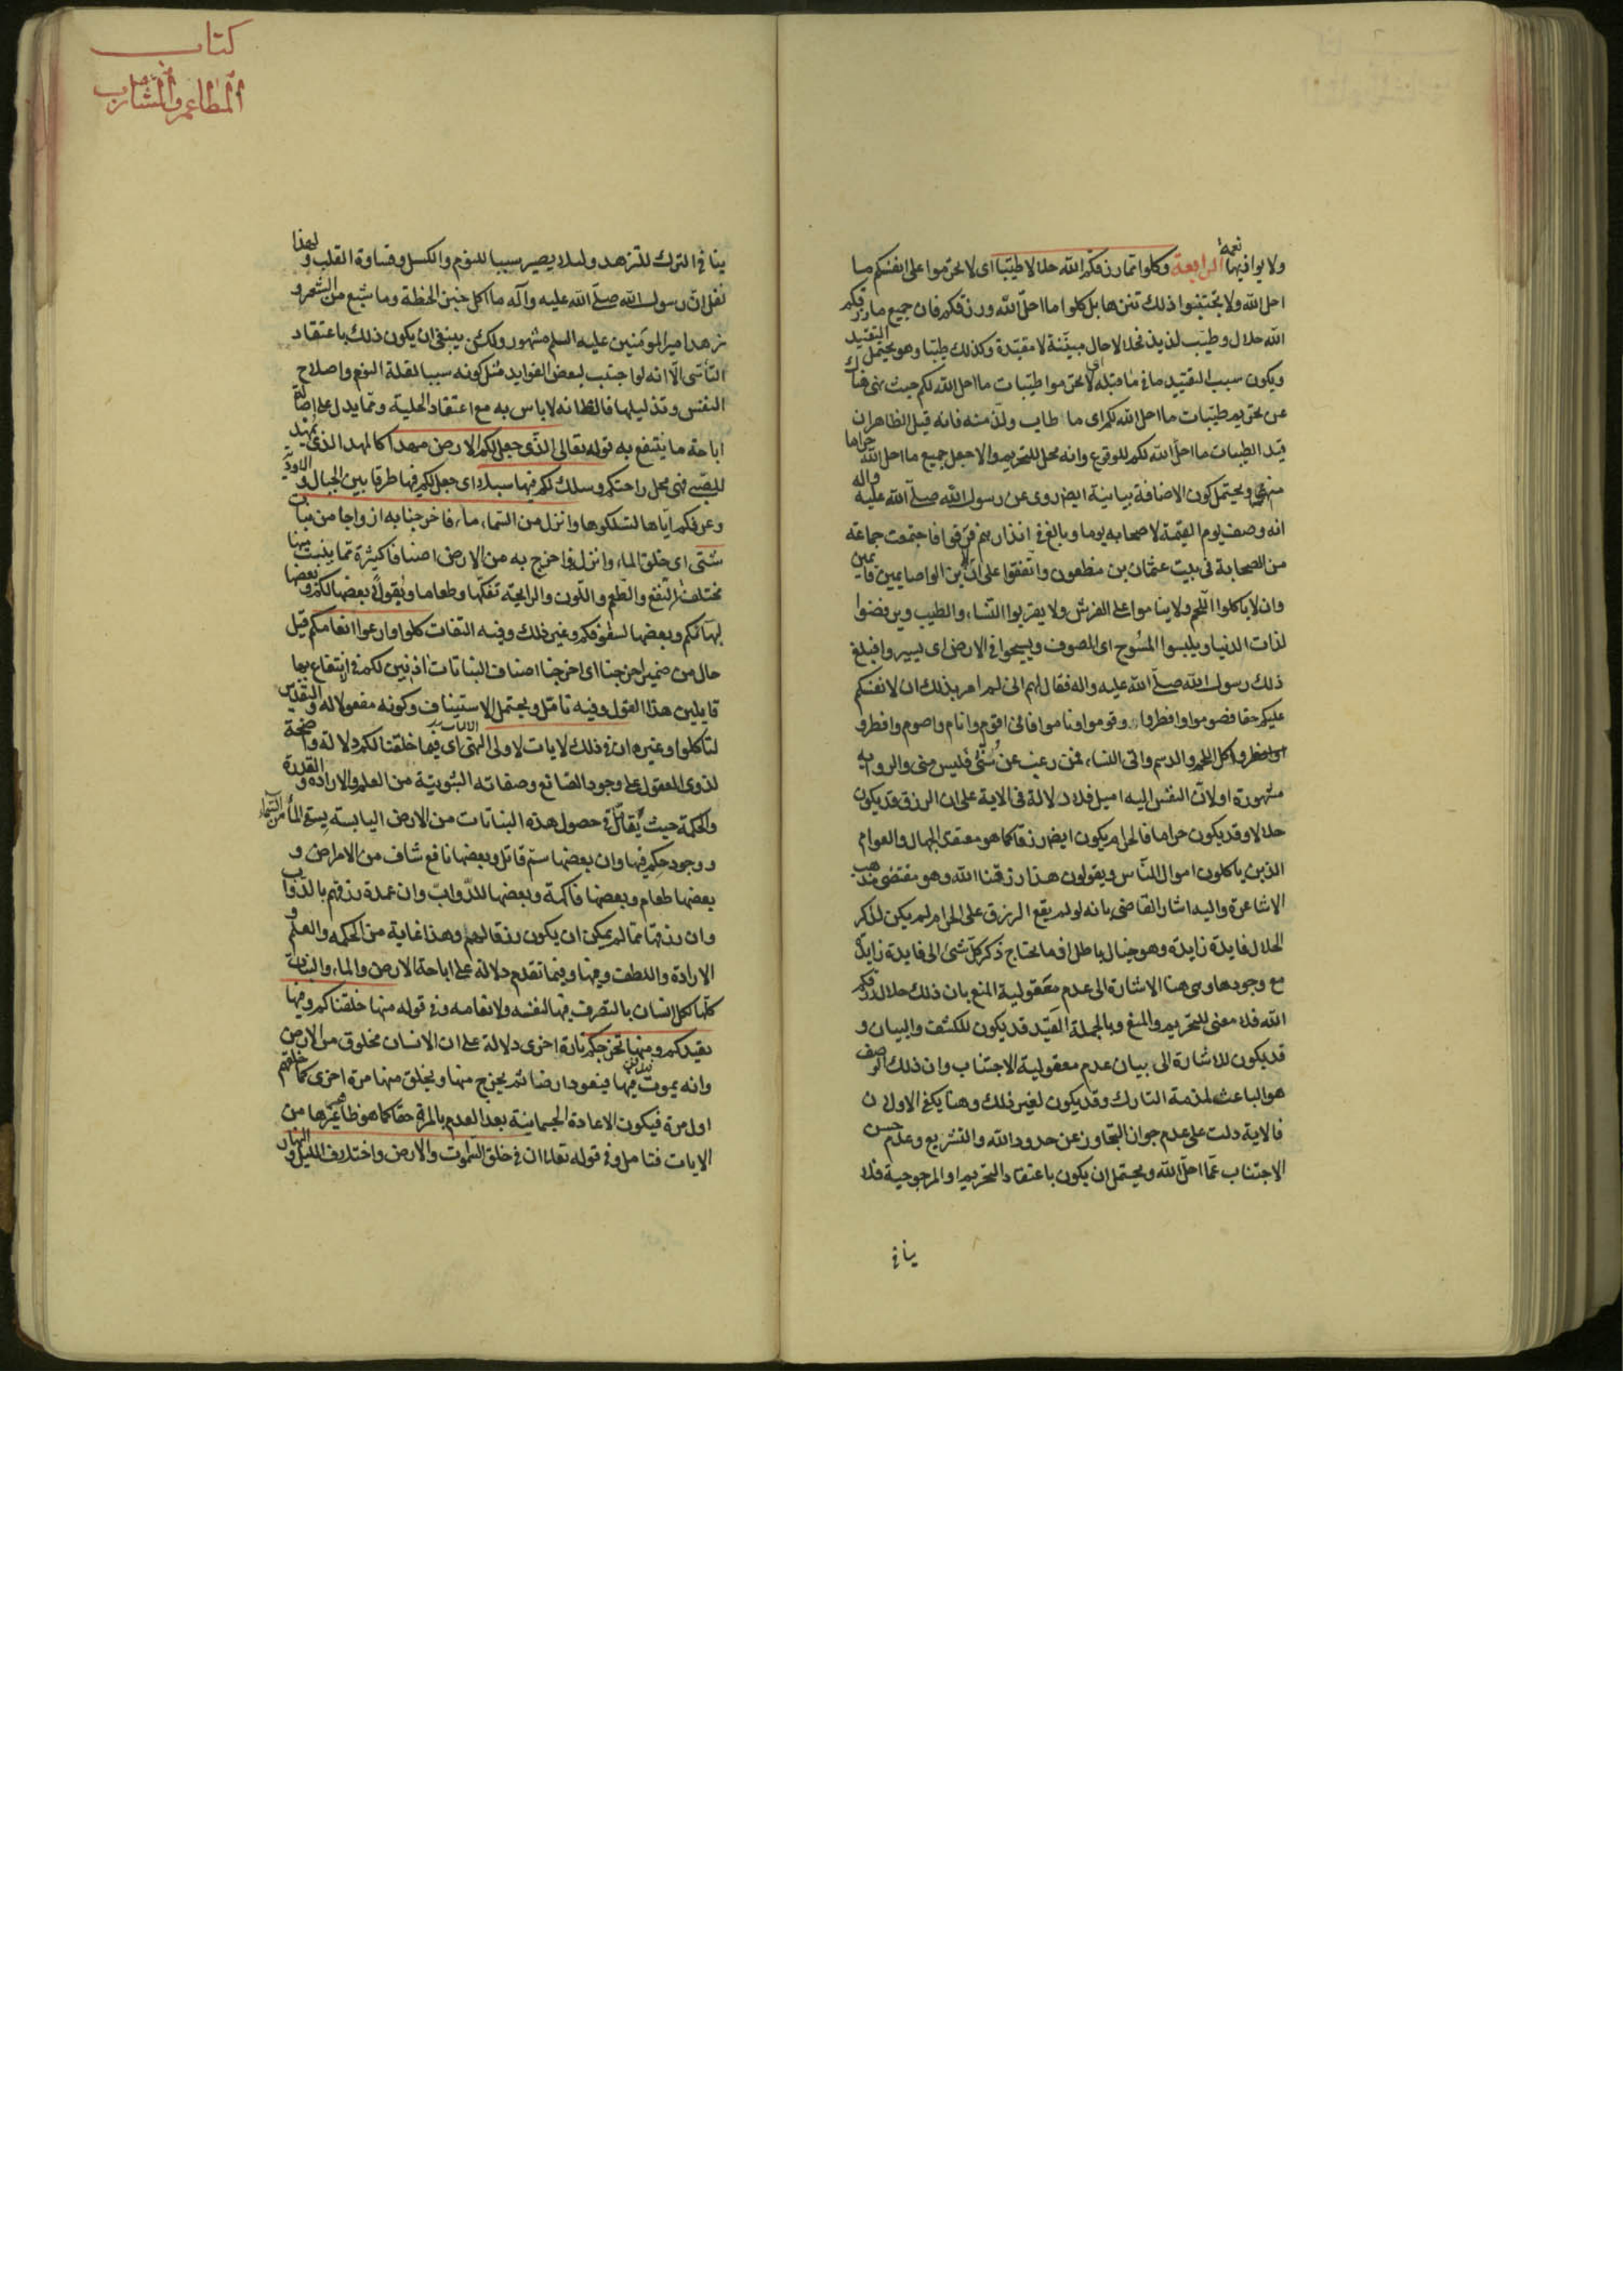 ولا يوافيها نعمه الرابعة وكلوا مما رزقكم الله حلالا طيبا اى لا تحرموا على انفسكم ما
احل الله ولا تجتنبوا ذلك تنزها بل كلوا ما احل الله ورزقكم فان جميع ما رزقكم
الله حلال وطيب لذيذ فحلالا حال مبينة لا مقيدة وكذلك طيبا وهو يحتمل التقييد
ويكون سبب التقييد ما فى ما قبله اى لا تحرموا طيبات ما احل الله لكم حيث نهى هناك
عن تحريم طيبات ما احل الله لكم اى ما طاب ولذ منه فانه قيل الظاهر ان
قيد الطيبات ما احل الله لكم للوقوع وانه محل للتحريم والا جعل جميع ما احل الله حراما
منهى ويحتمل كون الاضافة بيانية ايضا روى عن رسول الله صلى الله عليه واله
انه وصف يوم القيمة لاصحابه يوما وبالغ فى انذارهم فرقوا فاجتمعت جماعة
من الصحابة فى بيت عثمان بن مظعون واتفقوا على ان لا يزالوا صايمين قايمين
وان لا ياكلوا اللحم ولا يناموا على الفرش ولا يقربوا النساء والطيب ويرفضوا
لذات الدنيا ويلبسوا المسوح اى الصوف ويسيحوا فى الارض اى يسيروا فبلغ
ذلك رسول الله صلى الله عليه واله فقال لهم انى لم امر بذلك ان لانفسكم
عليكم حقا فصوموا وافطروا وقوموا وناموا فانى اقوم وانام واصوم وافطر و
اكل اللحم والدسم واتى النساء فمن رغب عن سنتى فليس منى والرواية
مشهورة اولان النفس اليه اميل فلا دلالة فى الاية على ان الرزق قد يكون
حلالا وقد يكون حراما فالحرام يكون ايضا رزقا كما هو معتقد الجهال والعوام
الذين ياكلون اموال الناس ويقولون هذا رزقنا الله وهو مقتضى مذهب
الاشاعرة واليه اشار القاضى بانه لو لم يقع الرزق على الحرام لم يكن لذكر
الحلال فايدة زايدة وهو خيال باطل اذ ما يحتاج ذكر كل شئ الى فايدة زايدة
مع وجودها وهى هنا الاشارة الى عدم معقولية المنع بان ذلك حلال رزقكم
الله فلا معنى للتحريم والمنع وبالجملة القيد قد يكون للكشف والبيان و
قد يكون للاشارة الى بيان عدم معقولية الاجتناب وان ذلك الوصف
هو الباعث لمذمة التارك وقد يكون لغير ذلك وهنا يكفى الاولان
فالاية دلت على عدم جواز التجاوز عن حدود الله والتشريع وعدم حسن
الاجتناب عما احل الله ويحتمل ان يكون باعتقاد التحريم او المرجوحية فلا
ينافى
كتاب
المطاعم والمشارب
ينافى الترك للتزهد ولئلا يصير سببا للنوم والكسل وقساوة القلب ولهذا
نقل ان رسول الله صلى الله عليه وآله ما اكل خبز الحنطة وما شبع من الشعير و
زهد امير المومنين عليه السلم مشهور ولكن ينبغى ان يكون ذلك باعتقاد
التأسى الا انه لو اجتنب لبعض الفوايد مثل كونه سببا لقلة النوم واصلاح
النفس وتذليلها فالظ انه لا باس به مع اعتقاد الحلية ومما يدل على اصالة
اباحة ما ينتفع به قوله تعالى الذى جعل لكم الارض مهدا كالمهد الذى يمهد
للصبى فهى محل راحتكم وسلك لكم فيها سبلا اى جعل لكم فيها طرقا بين الجبال والاودية
وعرفكم اياها لتسلكوها وانزل من السماء ماء فاخرجنا به ازواجا من نبات
شتى اى خلق الماء وانزل واخرج به من الارض اصنافا كثيرة مما ينبت منها
مختلف النفع والطعم واللون والرايحة تفكها وطعاما وبعضها لكم وبعضها
لبهائمكم وبعضها لسقوفكم وغير ذلك وفيه التفات كلوا وارعوا انعامكم قيل
حال من ضمير اخرجنا اى اخرجنا اصناف النباتات اذنين لكم فى انتفاع بها
قايلين هذا القول وفيه تامل ويحتمل الاستيناف وكونه مفعولا له والتقدير
لتاكلوا وغيره ان فى ذلك لايات لاولى النهى اى فيما خلقنا لكم دلالة واضحة
لذوى العقول على وجود الصانع وصفاته الثبوتية من العلم والارادة والقدرة
والحكمة حيث حصول هذه النباتات من الارض اليابسة من السماء
ووجود حكم فيها وان بعضها سم قاتل وبعضها نافع شاف من الامراض و
بعضها طعام وبعضها فاكهة وبعضها للدواب وان عمدة رزقهم بالدواب
وان رزقها مما لم يمكن ان يكون رزقا لهم وهذا غاية من الحكمه والعلم و
الارادة واللطف وفيها وفيما تقدم دلالة على اباحة الارض والماء والنبات
كلها لكل انسان بالتصرف فيها لنفسه ولانعامه وفى قوله منها خلقناكم وفيها
نعيدكم ومنها نخرجكم تارة اخرى دلالة على ان الانسان مخلوق من الارض
وانه يموت فيها فيعود ارضا ثم يخرج منها ويخلق منها مرة اخرى كما خلقهم
اول مرة فيكون الاعادة الجسمانية بعد العدم بالمرة حقا كما هو ظاهر غيرها من
الايات فتامل وفى قوله تعالى ان فى خلق السموات والارض واختلاف الليل والنهار